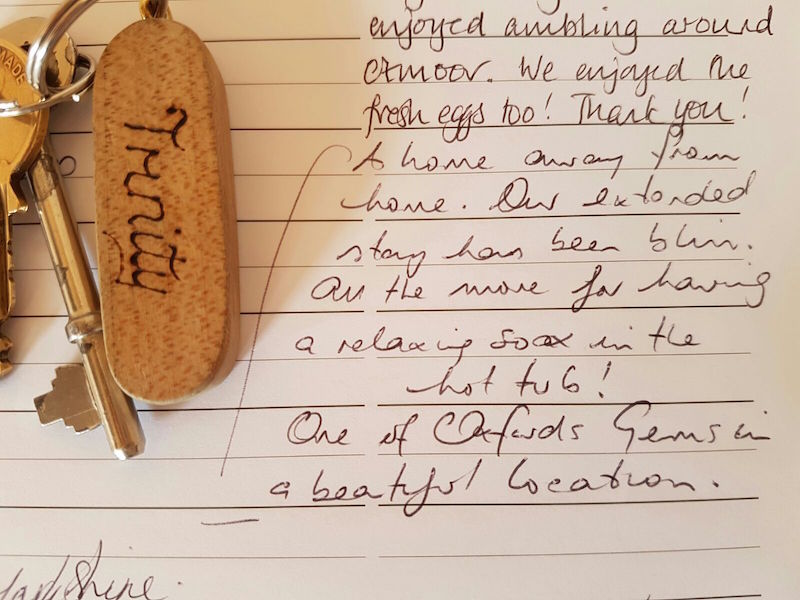 MADE
Trinity
enjoyed ambling around
Otmoor. We enjoyed the
fresh eggs too! Thank you!
A home away from
home. Our extended
stay has been bliss.
All the more for having
a relaxing soak in the
hot tub!
One of Oxfords Gems in
a beautiful location.